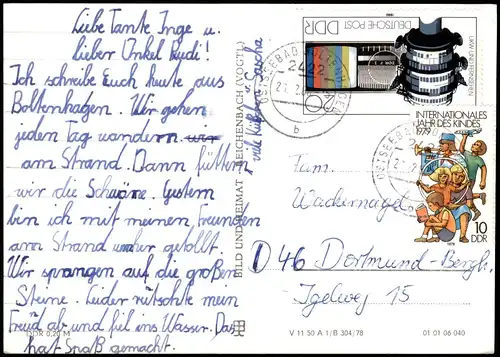 Liebe Tante Inge u.
lieber Onkel Rudi!
Ich schreibe Euch heute aus
Boltenhagen. Wir gehen
jeden Tag wandern
am Strand. Dann füttern
wir die Schwäne. Gestern
bin ich mit meinen Freunden
am Strand umher getollt.
Wir sprangen auf die großen
Steine. Leider rütschte mein
Freud ab und fiel ins Wasser. Das
hat Spaß gemacht.
viele Küßchen Sascha
DDR 0,20 M
BILD UND HEIMAT REICHENBACH (VOGTL)
DEUTSCHE POST
DDR
20
UKW
OSTSEEBAD BOLTENHAGEN
2422
b
INTERNATIONALES
JAHR DES KINDES
1979
10
DDR
Fam.
Wackernagel
D 46 Dortmund-Bergh.
Igelweg 15
V 11 50 A 1/B 304/78
01 01 06 040